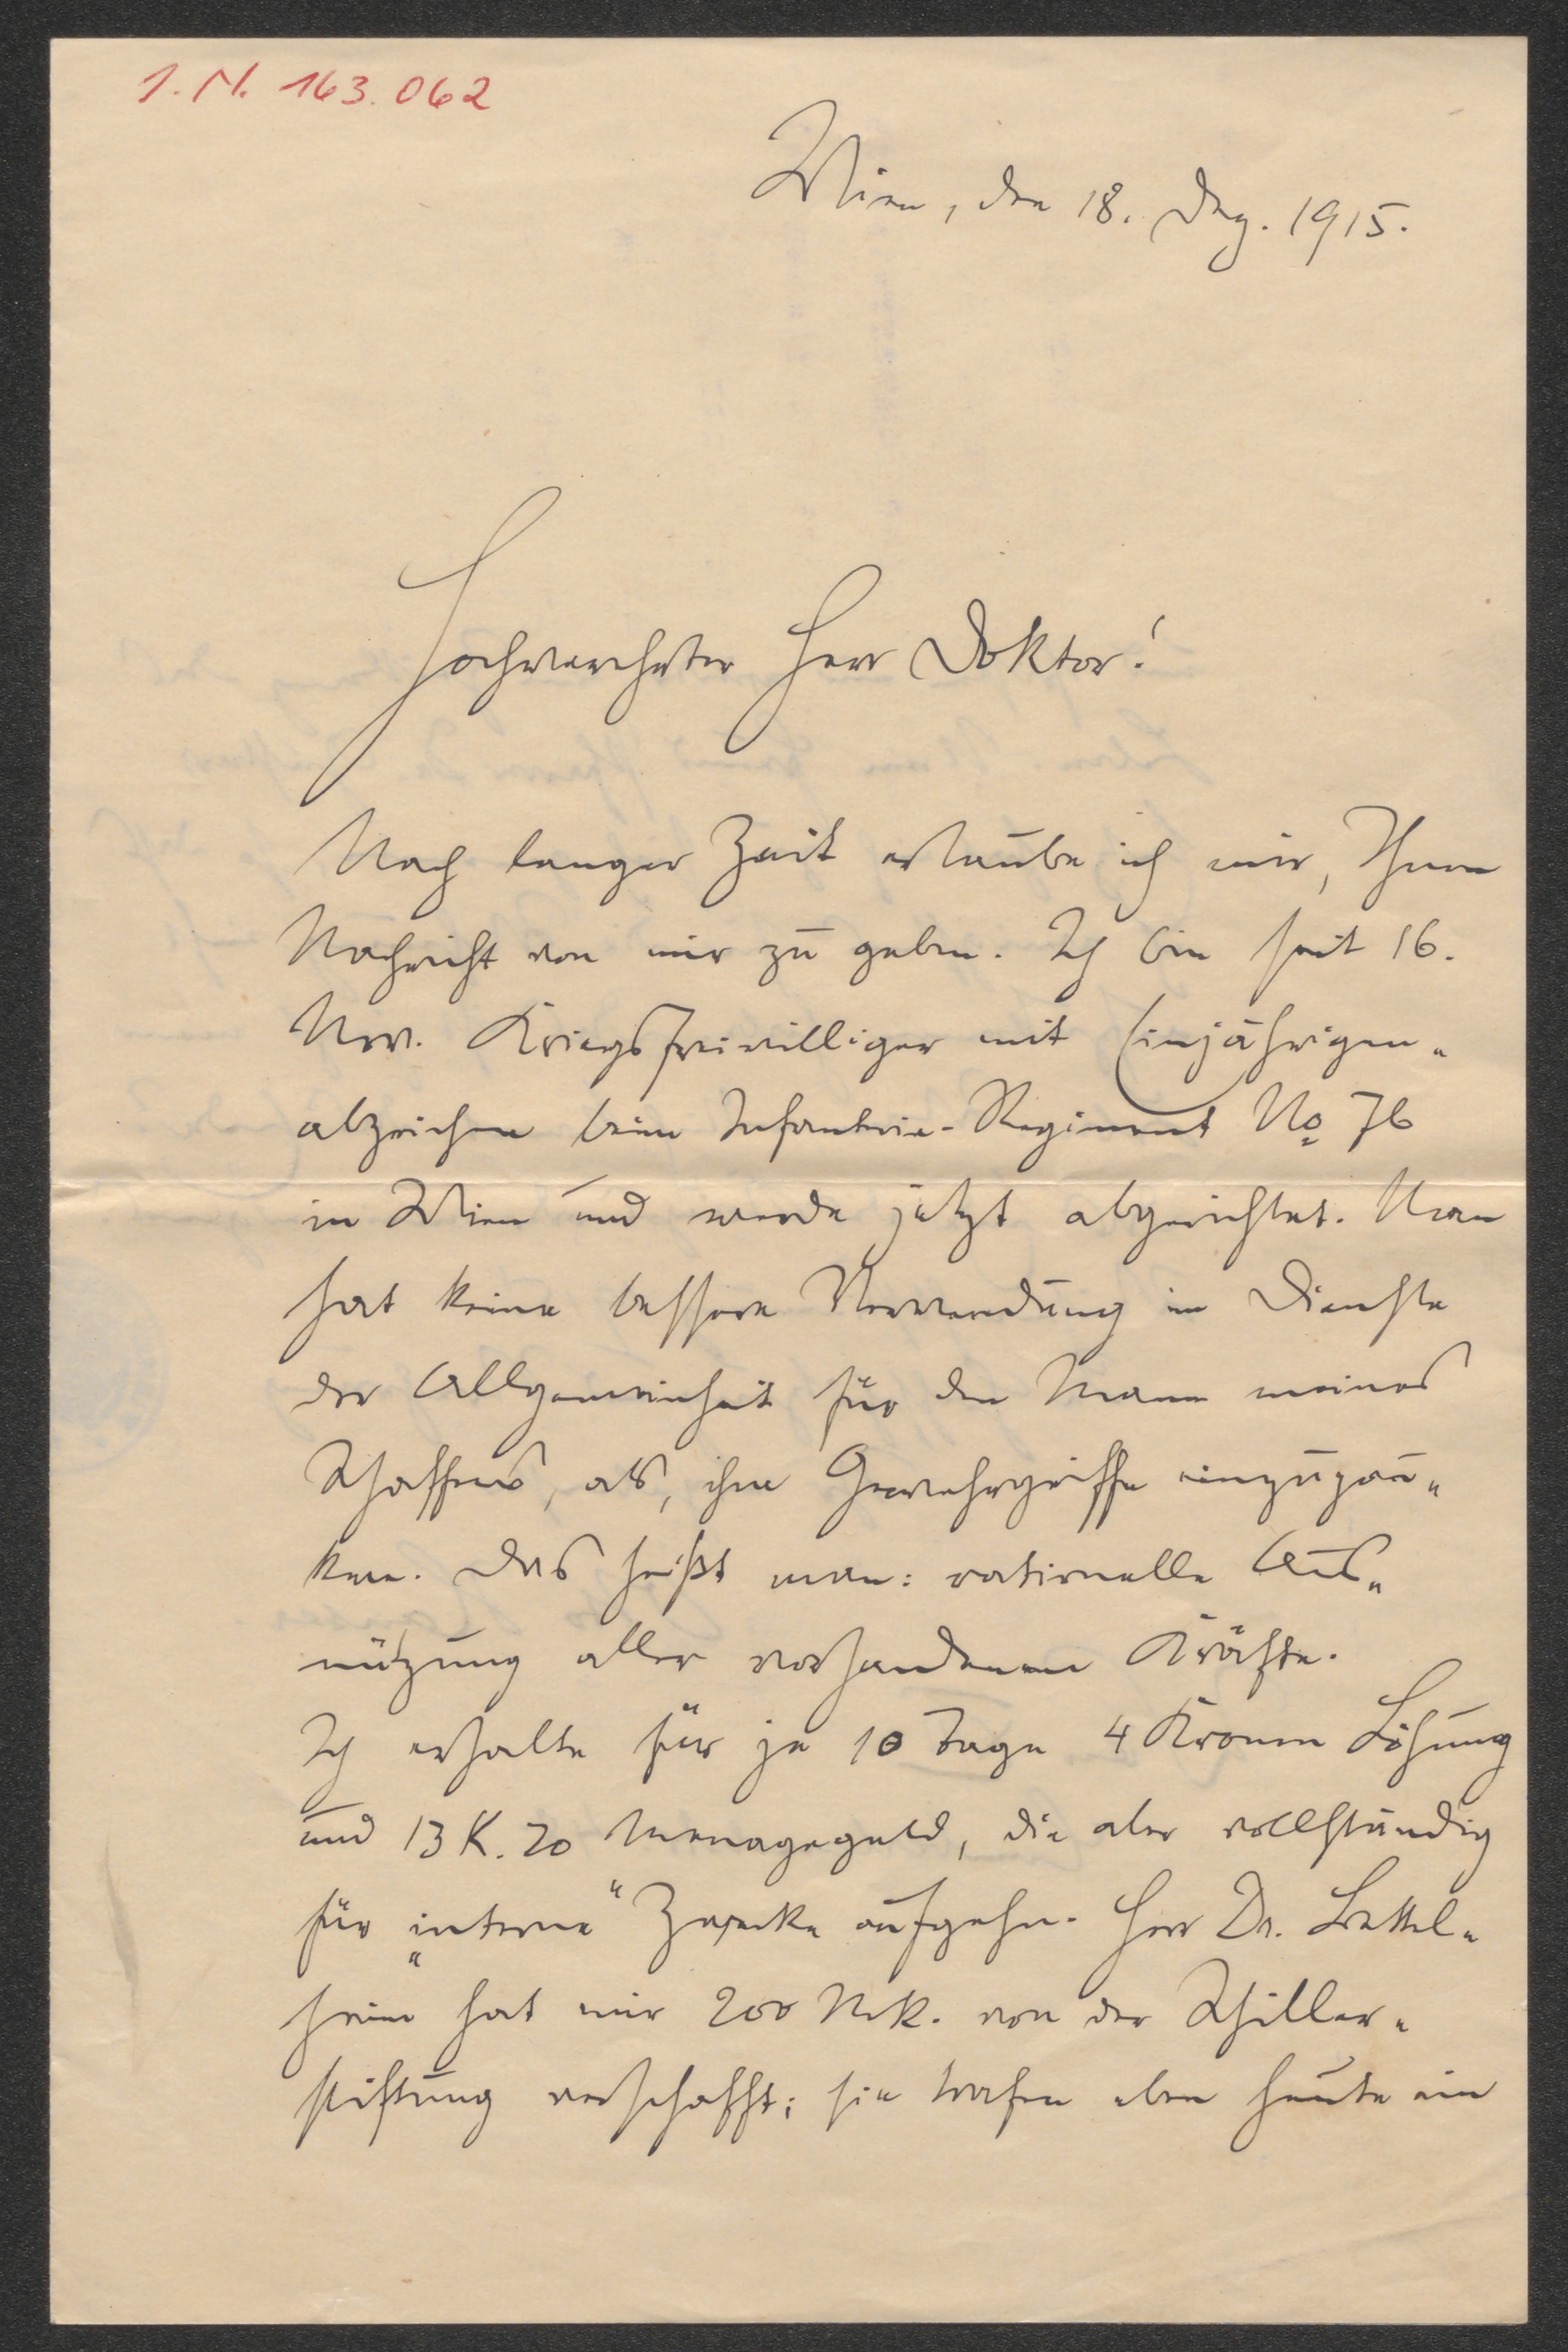 I. N. 163.062
Wien, den 18. Dez. 1915.
Hochverehrter Herr Doktor!
Nach langer Zeit erlaube ich mir, Ihnen
Nachricht von mir zu geben. Ich bin seit 16.
Nov. Kriegsfreiwilliger mit Einjährigen-
abzeichen beim Infanterie-Regiment No 76
in Wien und werde jetzt abgerichtet. Man
hat keine bessere Verwendung im Dienste
der Allgemeinheit für den Mann meines
Schaffens, als, ihm Gewehrgriffe einzupau-
ken. Das heißt man: rationelle Aus-
nützung aller vorhandenen Kräfte.
Ich erhalte für je 10 Tage 4 Kronen Löhnung
und 13 K. 20 Menagegeld, die aber vollständig
für „interne“ Zwecke aufgehn. Herr Dr. Bettel-
heim hat mir 200 Mk. von der Schiller-
stiftung verschafft; sie trafen eben heute ein